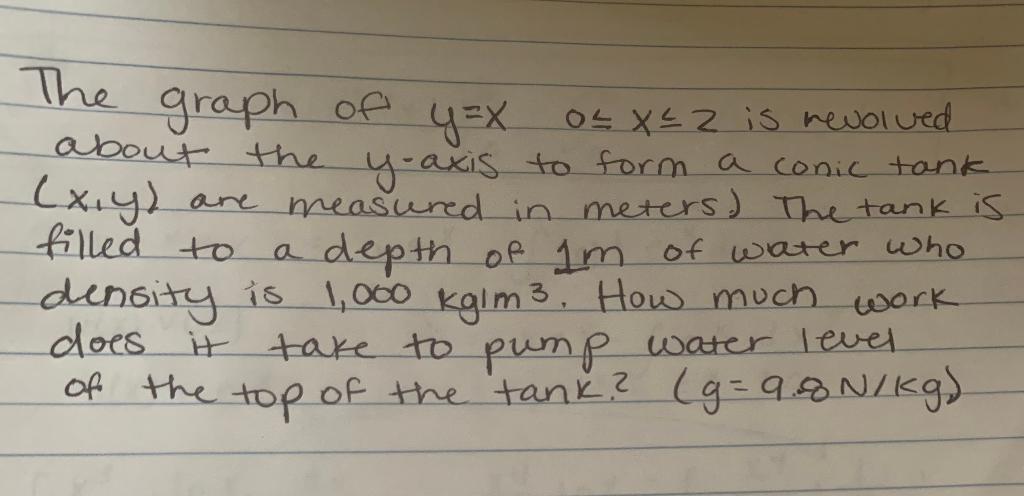 The graph of y=x 0≤ x≤2 is revolved
about the y-axis to form a conic tank
(x,y) are measured in meters) The tank is
filled to a depth of 1m of water who
density is 1,000 kg/m3. How much work
does it take to pump water level
of the top of the tank? (g=9.8N/kg)